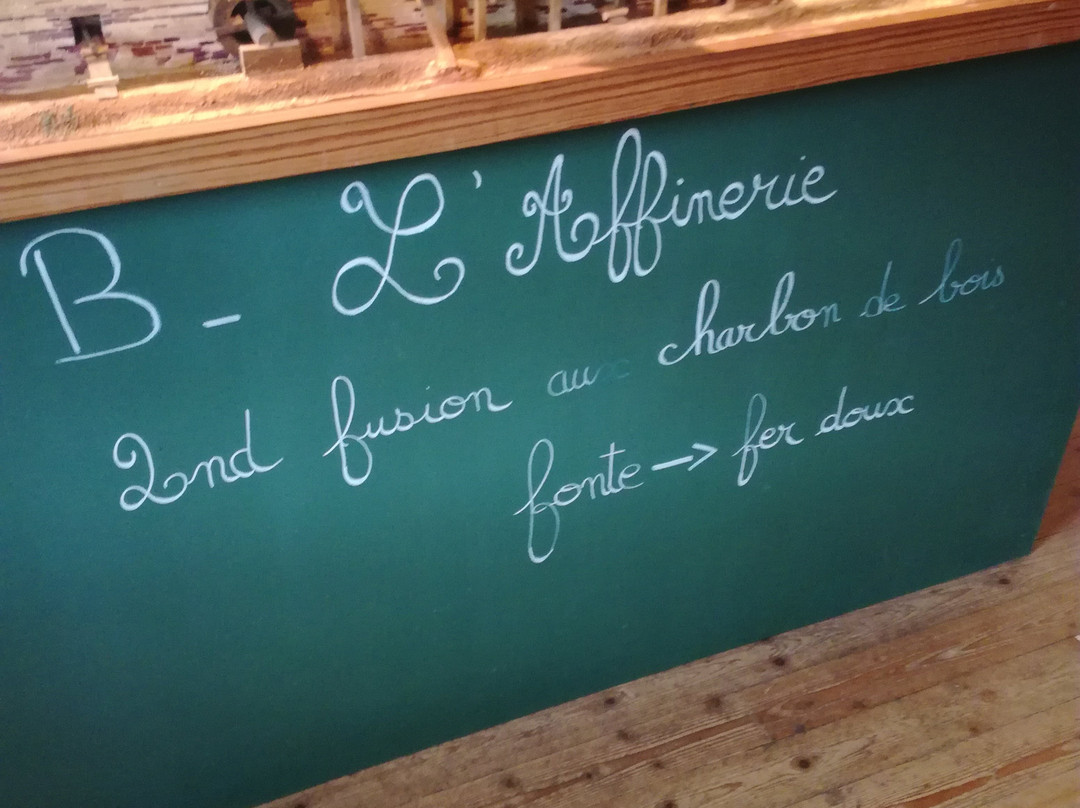 B - L'Affinerie
2nd fusion au charbon de bois
fonte → fer doux